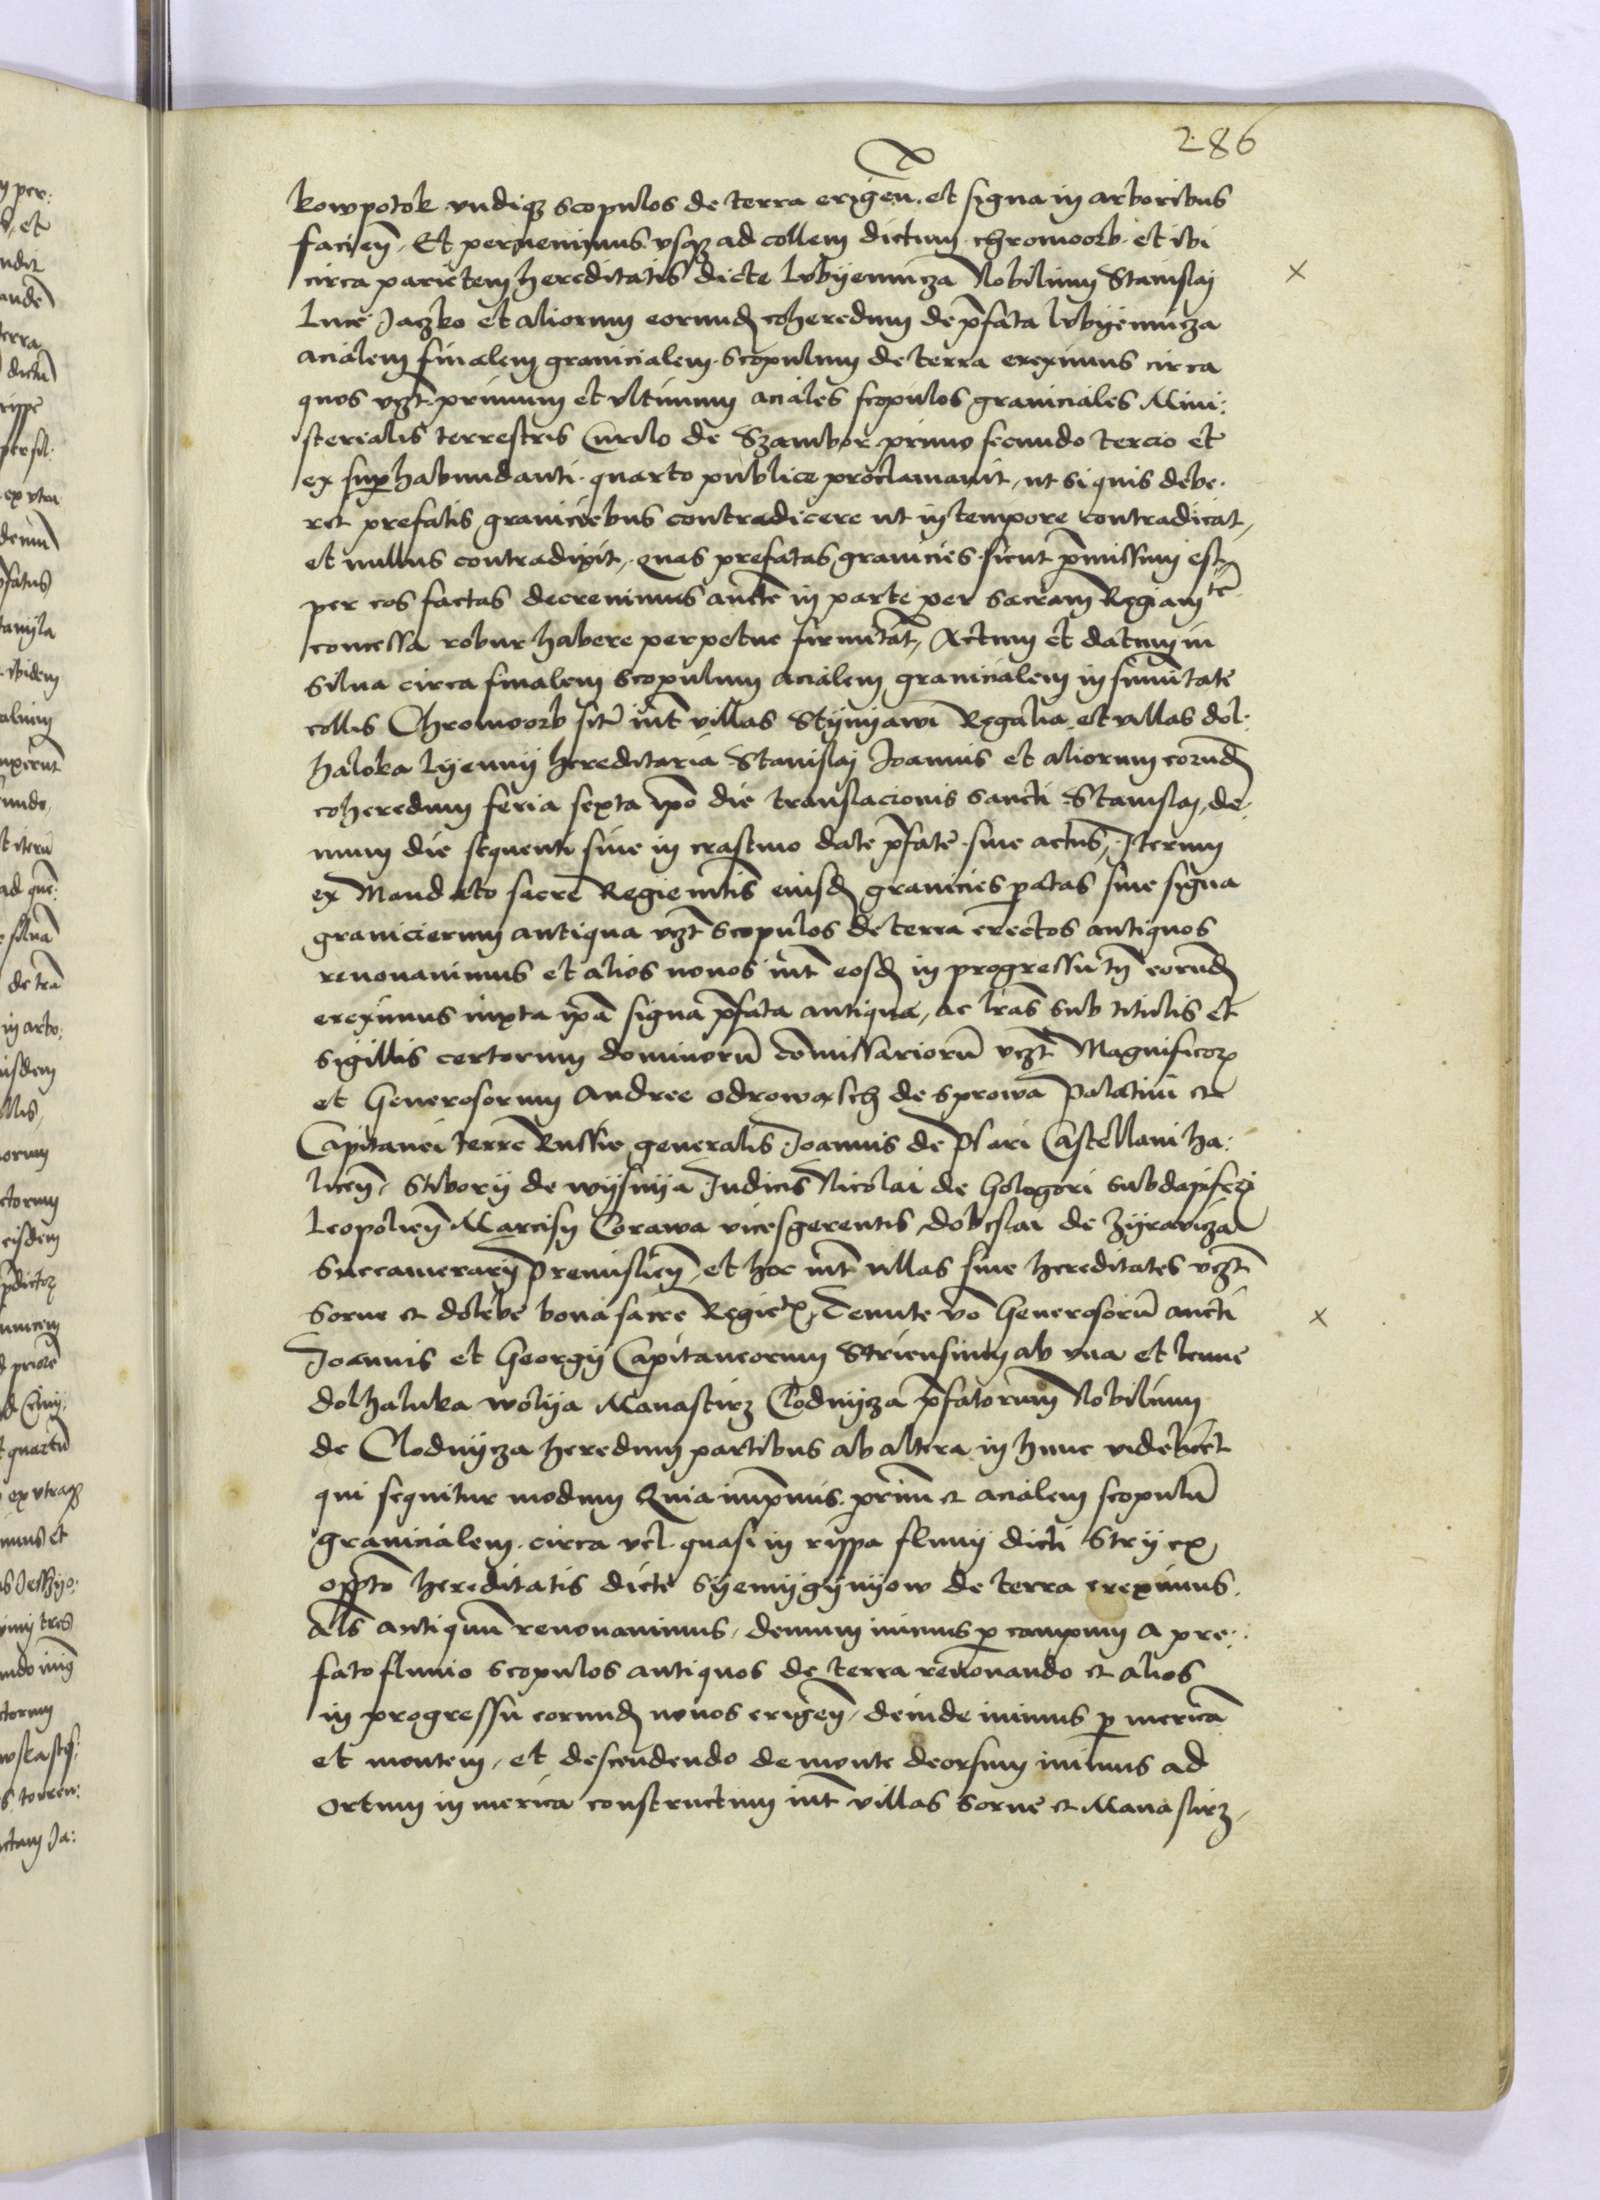 286
kowpotok vndiq3 scopulos de terra erigen̄. et signa in arboribus
facien̄. Et peruenimus vsq3 ad collem dictum chromoorb. et ibi
circa parietem hereditatis dicte lvbyenicza Nobilium Stanislaj
Luce Jaczko et aliorum eorund coheredum de p̄fata lvbyenicza
acialem finalem granicialem scopulum de terra ereximus circa
quos vz̄t primum et vltimum aciales scopulos graniciales Mini:
sterialis terrestris Curilo de Szambor primo secundo tercio et
ex sup habundanti quarto publice proclamauit, ut si quis debe.
ret prefatis graniciebus contradicere ut in tempore contradicat,
et nullus contradixit, quas prefatas granicies sicut p̄missum est
per eos factas decreuimus auct̄te in parte per Sacram Regiam tē
concessa robur habere perpetue firmitāt, Actum et datum in
silua circa finalem scopulum acialem granicialem in sum̄itate
collis Chromoorb sitē int̄ villas Stynyawi Regalia et villas dol:
haloka Lyenny hereditaria Stanislaj Joannis et aliorum eorund
coheredum feria sexta ip̄o die translacionis sancti Stanislai, de:
mum die sequenti siue in crastino date p̄fate siue actus, Iterum
ex Mandato sacre Regie mt̄is eiusd granicies patas siue signa
granicierum antiqua vz̄t scopulos de terra erectos antiquos
renouauimus et alios nouos int̄ eosd in progressu tn̄ eorund
ereximus iuxta ip̄a signa p̄fata antiqua, ac lr̄as sub titulis et
sigillis certorum dominorū comissariorū vz̄t Magnificor
et Generosorum Andree odrowasch de sprowa Palatini et
Capitanei terre Russie generalis Joannis de Psari Castellani ha:
licen̄, Stibory de wysnya Judicis Nicolai de Gologori Subdapiferi
Leopolien̄ Marcisy Corawa vicesgerentis dobeslai de Zyrawicza
Succamerary Premislien̄, et hoc int̄ villas siue hereditates vz̄t
Sorne et dolebe bona sacre Regie, Tenute vo Generosorū aucti
Joannis et Georgy Capitaneorum Striensium ab vna et lenne
dolhaluka wolya Manastirz Clodnycza p̄fatorum Nobilium
de Clodnycza heredum partibus ab altera in hunc videlicet
qui sequitur modum Quia inprimis primū et acialem scopulū
granicialem circa vel quasi in rippa fluuy dicti Stry ex
oppto hereditatis dicte Syemygynyow de terra ereximus.
Als antiquū renouauimus, demum iuimus p campum a pre:
fato fluuio scopulos antiquos de terra renouando et alios
in progressu eorund nouos erigen̄, deinde iuimus p mericā
et montem, et descendendo de monte deorsum iuimus ad
ortum in merica constructum int̄ villas Sorne et Manastirz,